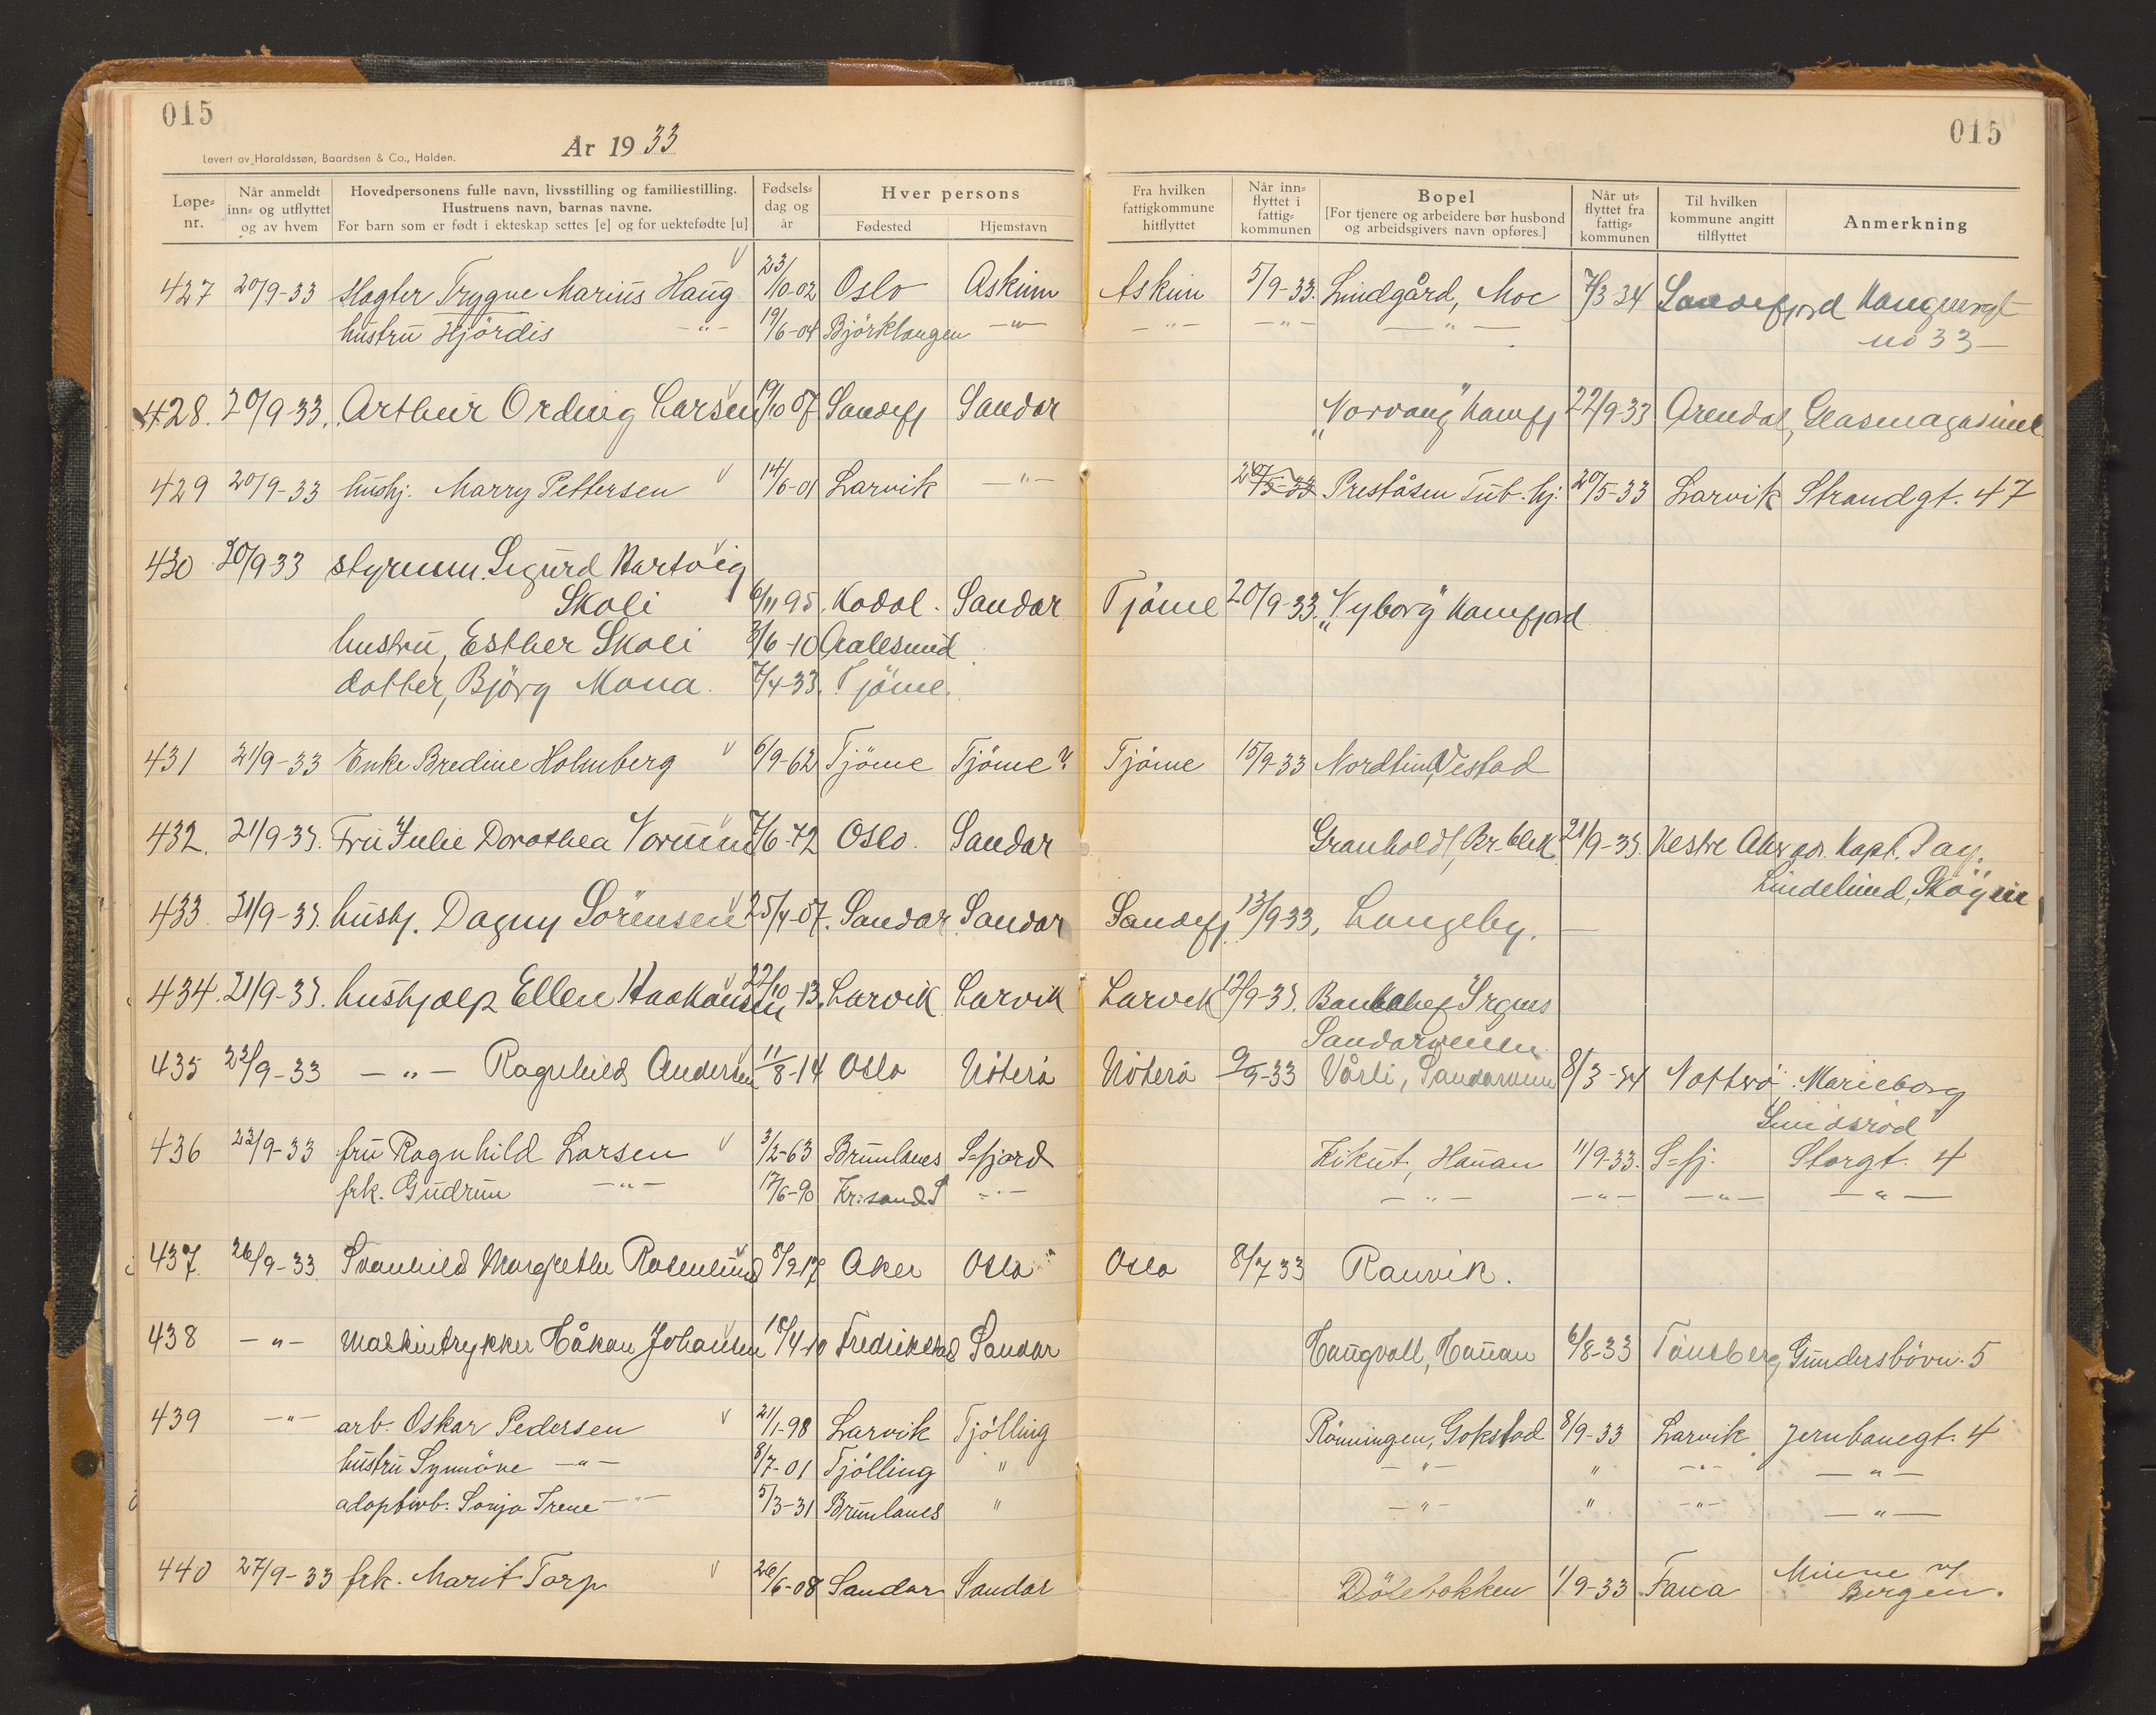 015
015
År 1933
Levert av Haraldssøn, Baardsen & Co., Halden.
Løpe-nr.
Når anmeldt inn- og utflyttet og av hvem
Hovedpersonens fulle navn, livsstilling og familiestilling.
Hustruens navn, barnas navne.
For barn som er født i ekteskap settes [e] og for uektefødte [u]
Fødsels-dag og år
Hver persons
Fødested
Hjemstavn
Fra hvilken fattigkommune hitflyttet
Når inn-flyttet i fattig-kommunen
Bopel
[For tjenere og arbeidere bør husbond og arbeidsgivers navn opføres.]
Når ut-flyttet fra fattig-kommunen
Til hvilken kommune angitt tilflyttet
Anmerkning
427 20/9-33 slagter Trygve Marius Haug 23/10-02 Oslo Askim Askim 5/9-33. Lindgård, Moe 7/3-34 Sandefjord
no 33
hustru Hjördis -"- 19/6-04 Björklangen -"- -"- -"- -"-
428. 20/9-33. Arthur Ording Larsen 19/10 07 Sandefj Sandar "Norvang" Kamfj 22/9-33 Arendal, Glasmagasinet
429 20/9-33 hushj. Marry Pettersen 14/6-01 Larvik -"- 20/5-33 Preståsen Tub. hj. 20/5-33 Larvik Strandgt. 47
430 20/9 33 styrmm. Sigurd Hartvig
Skoli 6/11 95. Kodal. Sandar Tjöme 20/9-33. "Nyborg" Kamfjord
hustru, Esther Skoli 3/6-10 Aalesund
datter, Björg Mona. 7/4-33. Tjöme.
431 21/9-33 Enke Bredine Holmberg 6/9-62 Tjöme Tjöme ?. Tjöme 15/9-33 Nordtun, Vestad
432. 21/9-33. Fru Julie Dorothea 7/6-72 Oslo. Sandar Granholdt, Br. blek 21/9-33. Vestre Aker adr. Kapt. Pay.
Lindelund, Skøyen
433. 21/9-33. hushj. Dagny Sörensen 25/4-07. Sandar Sandar Sandefj. 13/9-33, Langeby.
434. 21/9-33. hushjælp Ellen Haakonsen 22/10-13. Larvik Larvik Larvik 12/9-33. Bankchef
Sandarveien
435 22/9-33 -"- Ragnhild Andersen 11/8-14 Oslo Nöterö Nöterö 9/9-33 Vårli, Sandarveien 8/3-34 Nötterö. Marieborg
Smidsröd
436 23/9-33 fru Ragnhild Larsen 3/2-63 Brunlanes S=fjord Kikut, Hauan 11/9-33. S=fj. Storgt. 4
frk. Gudrun -"- 17/6-90 Kr:sand S -"- -"- -"- -"- -"-
437. 26/9-33. Svanhild Margrethe Rosenlund 8/9 17 Aker Oslo Oslo 8/7 33 Ranvik.
438 -"- Maskintrykker Håkon Johansen 18/4-10 Fredrikstad Sandar Haugvoll, Hauan 6/8-33 Tönsberg Gundersbövn. 5
439 -"- arb. Oskar Pedersen 21/1-98 Larvik Tjölling Rönningen, Gokstad 8/9-33 Larvik Jernbanegt. 4
hustru Synnöve -"- 8/7-01 Tjölling " -"- " -"- -"-
adoptivb. Sonja Irene -"- 5/3-31 Brunlanes " -"- " -"- -"-
440 27/9-33 frk. Marit Torp 26/6-08 Sandar Sandar Dölebakken 1/9-33 Fana Minne v/
Bergen.